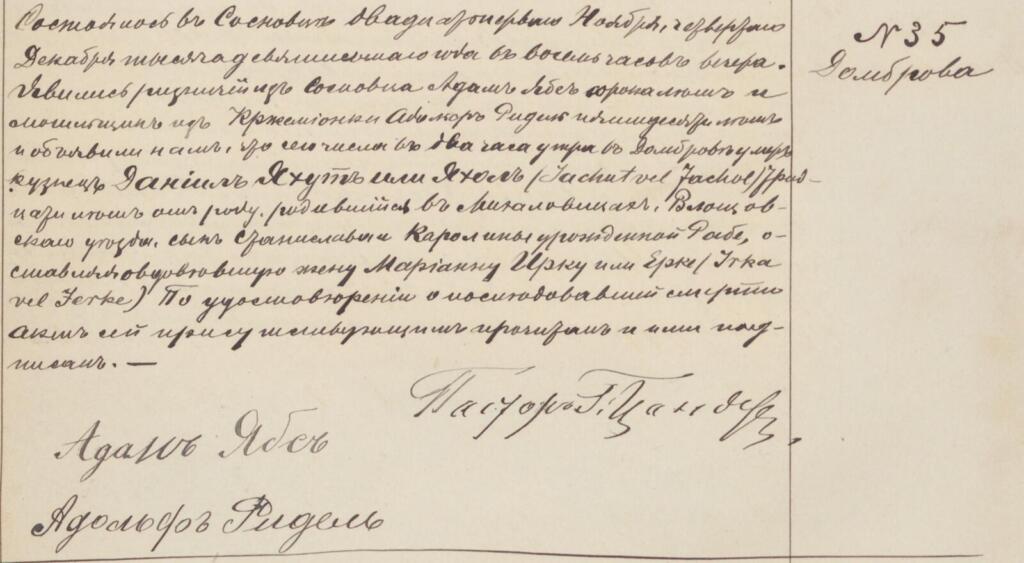 Состоялось въ Сосновцѣ двадцатопервого Ноября, четвертаго
Декабря тысяча девятисотаго года въ восемь часовъ вечера.
Явились ризничій изъ Сосновца Адамъ Ябсъ сорока лѣтъ и
могильщикъ изъ Кржеміонки Адольфъ Ридель пятидесяти лѣтъ
и объявили намъ, что сего числа въ два часа утра въ Домбровѣ умеръ
кузнецъ Даніилъ Яхутъ или Яхолъ (Jachut vel Jachol) трид-
цати лѣтъ отъ роду, родившійся въ Михаловицахъ, Влощов-
скаго уѣзда, сынъ Станислава и Каролины урожденной Рабе, о-
ставляя овдовѣвшую жену Маріанну Ирку или Ерке (Irka
vel Jerke) По удостовѣреніи о послѣдовавшей смерти
актъ сей присутствующимъ прочитанъ и ими под-
писанъ. —
Пасторъ Г. Цандеръ
Адамъ Ябсъ
Адольфъ Ридель
N 35
Домброва